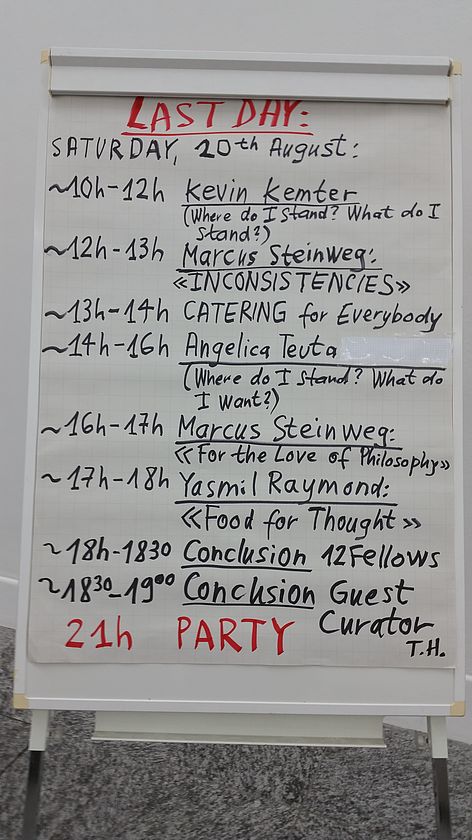 LAST DAY:
SATURDAY, 20th August:
~10h-12h Kevin Kemter
(Where do I Stand? What do I
Stand?)
~12h-13h Marcus Steinweg:
«INCONSISTENCIES»
~13h-14h CATERING for Everybody
~14h-16h Angelica Teuta
(Where do I Stand? What do
I Want?)
~16h-17h Marcus Steinweg:
«For the Love of Philosophy»
~17h-18h Yasmil Raymond:
«Food for Thought»
~18h-1830 Conclusion 12Fellows
~1830-1900 Conclusion Guest
Curator
T.H.
21h PARTY